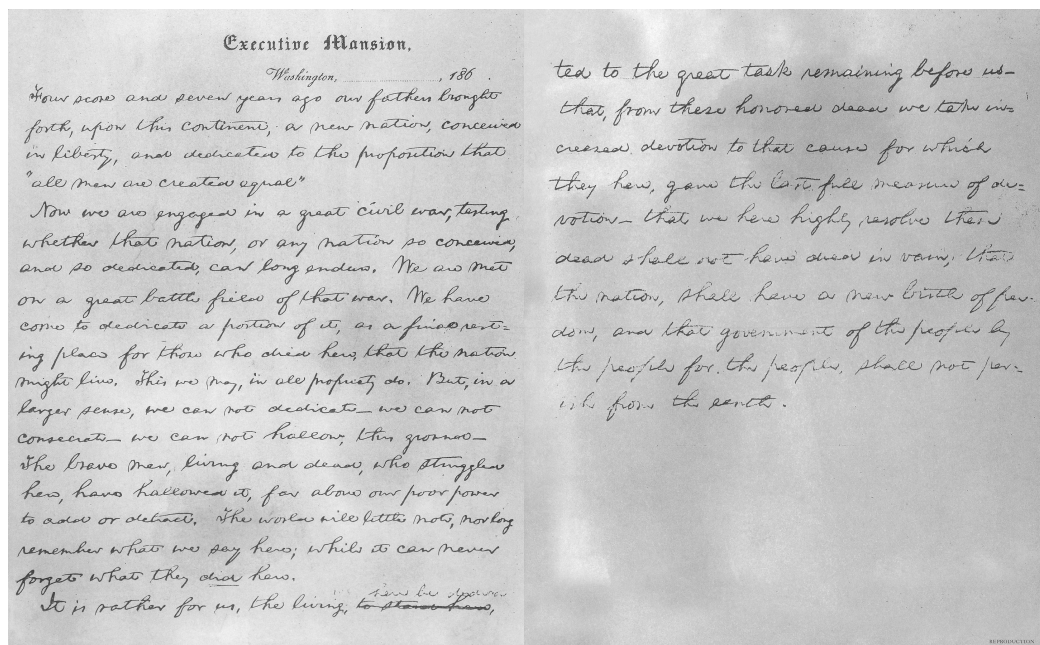 Executive Mansion,
Washington, , 186 .
Four score and seven years ago our fathers brought
forth, upon this continent, a new nation, conceived
in liberty, and dedicated to the proposition that
"all men are created equal"
Now we are engaged in a great civil war, testing
whether that nation, or any nation so conceived,
and so dedicated, can long endure. We are met
on a great battle field of that war. We have
come to dedicate a portion of it, as a final rest=
ing place for those who died here, that the nation
might live. This we may, in all propriety do. But, in a
larger sense, we can not dedicate— we can not
consecrate— we can not hallow, this ground—
The brave men, living and dead, who struggled
here, have hallowed it, far above our poor power
to add or detract. The world will little note, nor long
remember what we say here; while it can never
forget what they did here.
here be dedica
It is rather for us, the living, to stand here,
ted to the great task remaining before us—
that, from these honored dead we take in=
creased devotion to that cause for which
they here, gave the last full measure of de=
votion— that we here highly resolve these
dead shall not have died in vain; that
the nation, shall have a new birth of free=
dom, and that government of the people by
the people for the people, shall not per=
ish from the earth.
REPRODUCTION